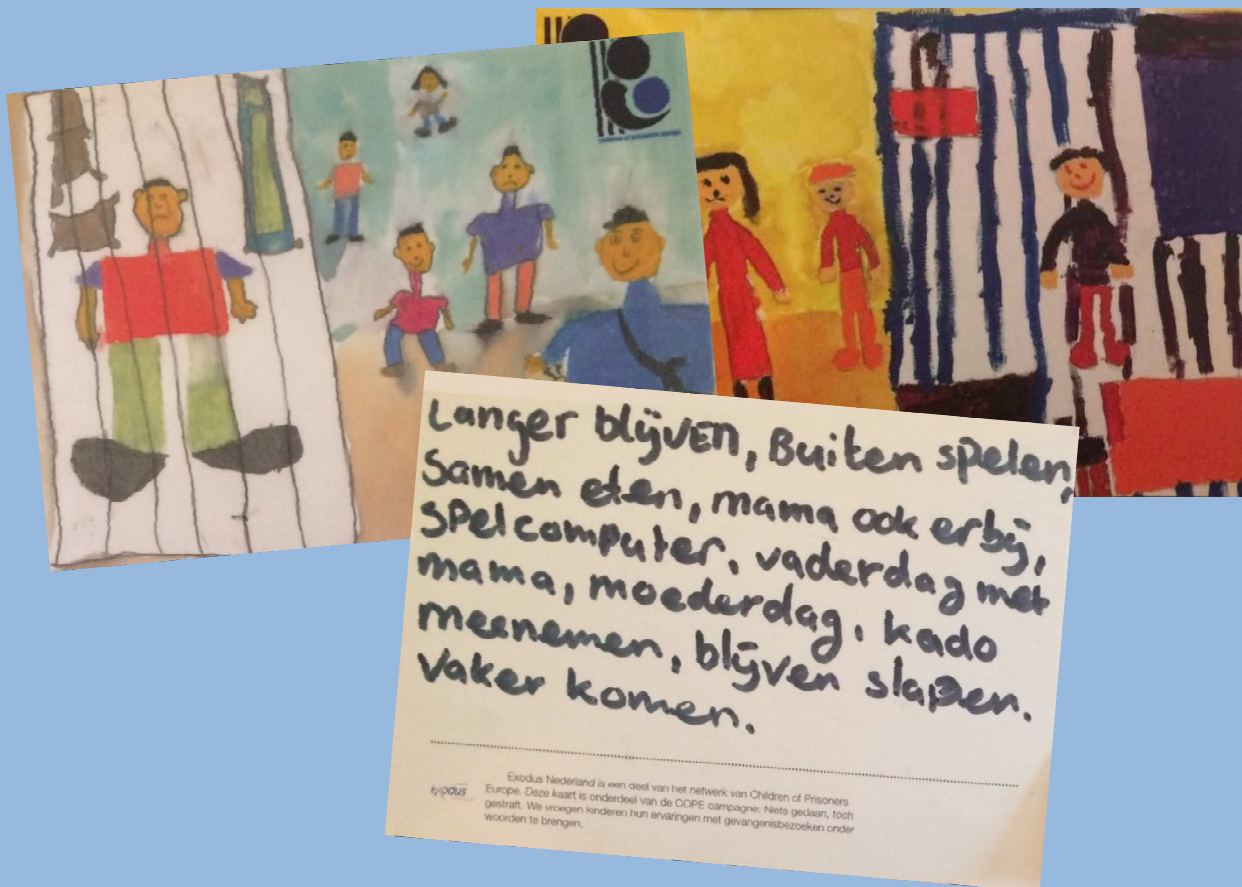 Children of Prisoners Europe
Langer blijven, Buiten spelen,
Samen eten, mama ook erbij,
Spelcomputer, vaderdag met
mama, moederdag, kado
meenemen, blijven slapen.
Vaker komen.
exodus
Exodus Nederland is een deel van het netwerk van Children of Prisoners
Europe. Deze kaart is onderdeel van de COPE campagne: Niets gedaan, toch
gestraft. We vroegen kinderen hun ervaringen met gevangenisbezoeken onder
woorden te brengen.